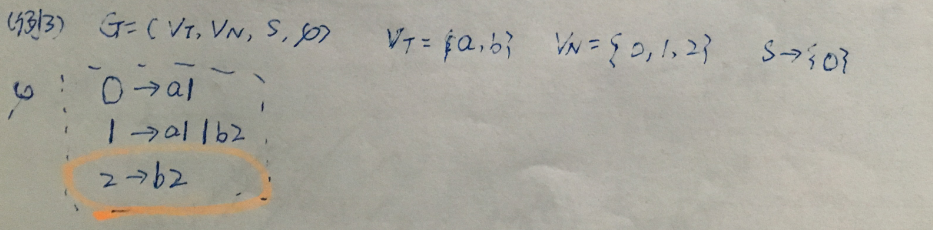 (例3) G=(VT, VN, S, φ) VT={a,b} VN={0,1,2} S→{0}
φ: 0→a1
1→a1|b2
2→b2